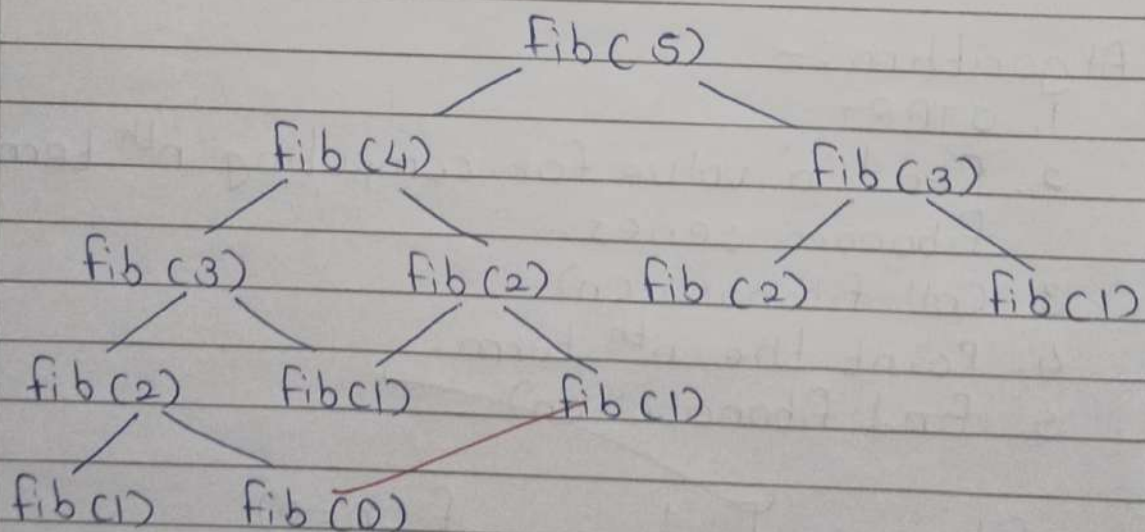 fib(5)
fib(4) fib(3)
fib(3) fib(2) fib(2) fib(1)
fib(2) fib(1) fib(1)
fib(1) fib(0)